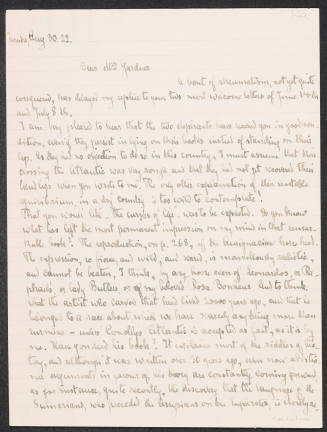 Aug 30. 22.
Dear Mrs Gardner
a bout of rheumatism, not yet quite
conquered, has delayed my replies to your two most welcome letters of June 14th
and July 8th.
I am very pleased to hear that the two elephants have reached you in good con-
dition, merely they persist in lying on their backs instead of standing on their
legs. As they had no objection to do so in this country, I must assume that
crossing the Atlantic was very rough and that they had not yet recovered their
land legs when you wrote to me. The only other explanation of their unstable
equilibrium, in a dry country is too awful to contemplate!
That you would like the was to be expected. Do you know
what has left the most permanent impression on my mind in that
book? The reproduction, on p. 268, of the horse head.
The expression, so fierce, and wild, and weird, is marvellously realistic,
and cannot be beaten, I think, by any horse even of Leonardos, or
or Lady Butlers or of my beloved Rosa Bonheur. And to think
that the artist who carved that lived 20000 years ago, and that he
belonged to a race about which we know scarcely anything more than
unless Donellys Atlantis is accepted as fact, as it is by
me. Have you read his book? It explains most of the riddles of his-
tory, and although it was written over 30 years ago, even now
arguments in favour of his theory are constantly coming forward
as for instance, quite recently, the discovery that the language of the
Sumerians, who preceded the Assyrians on the Euphrates, is closely